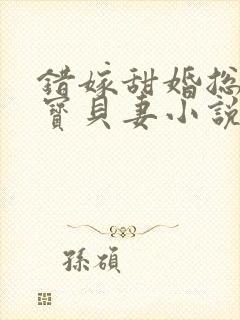 錯嫁甜婚總
寶貝妻小說
孫碩